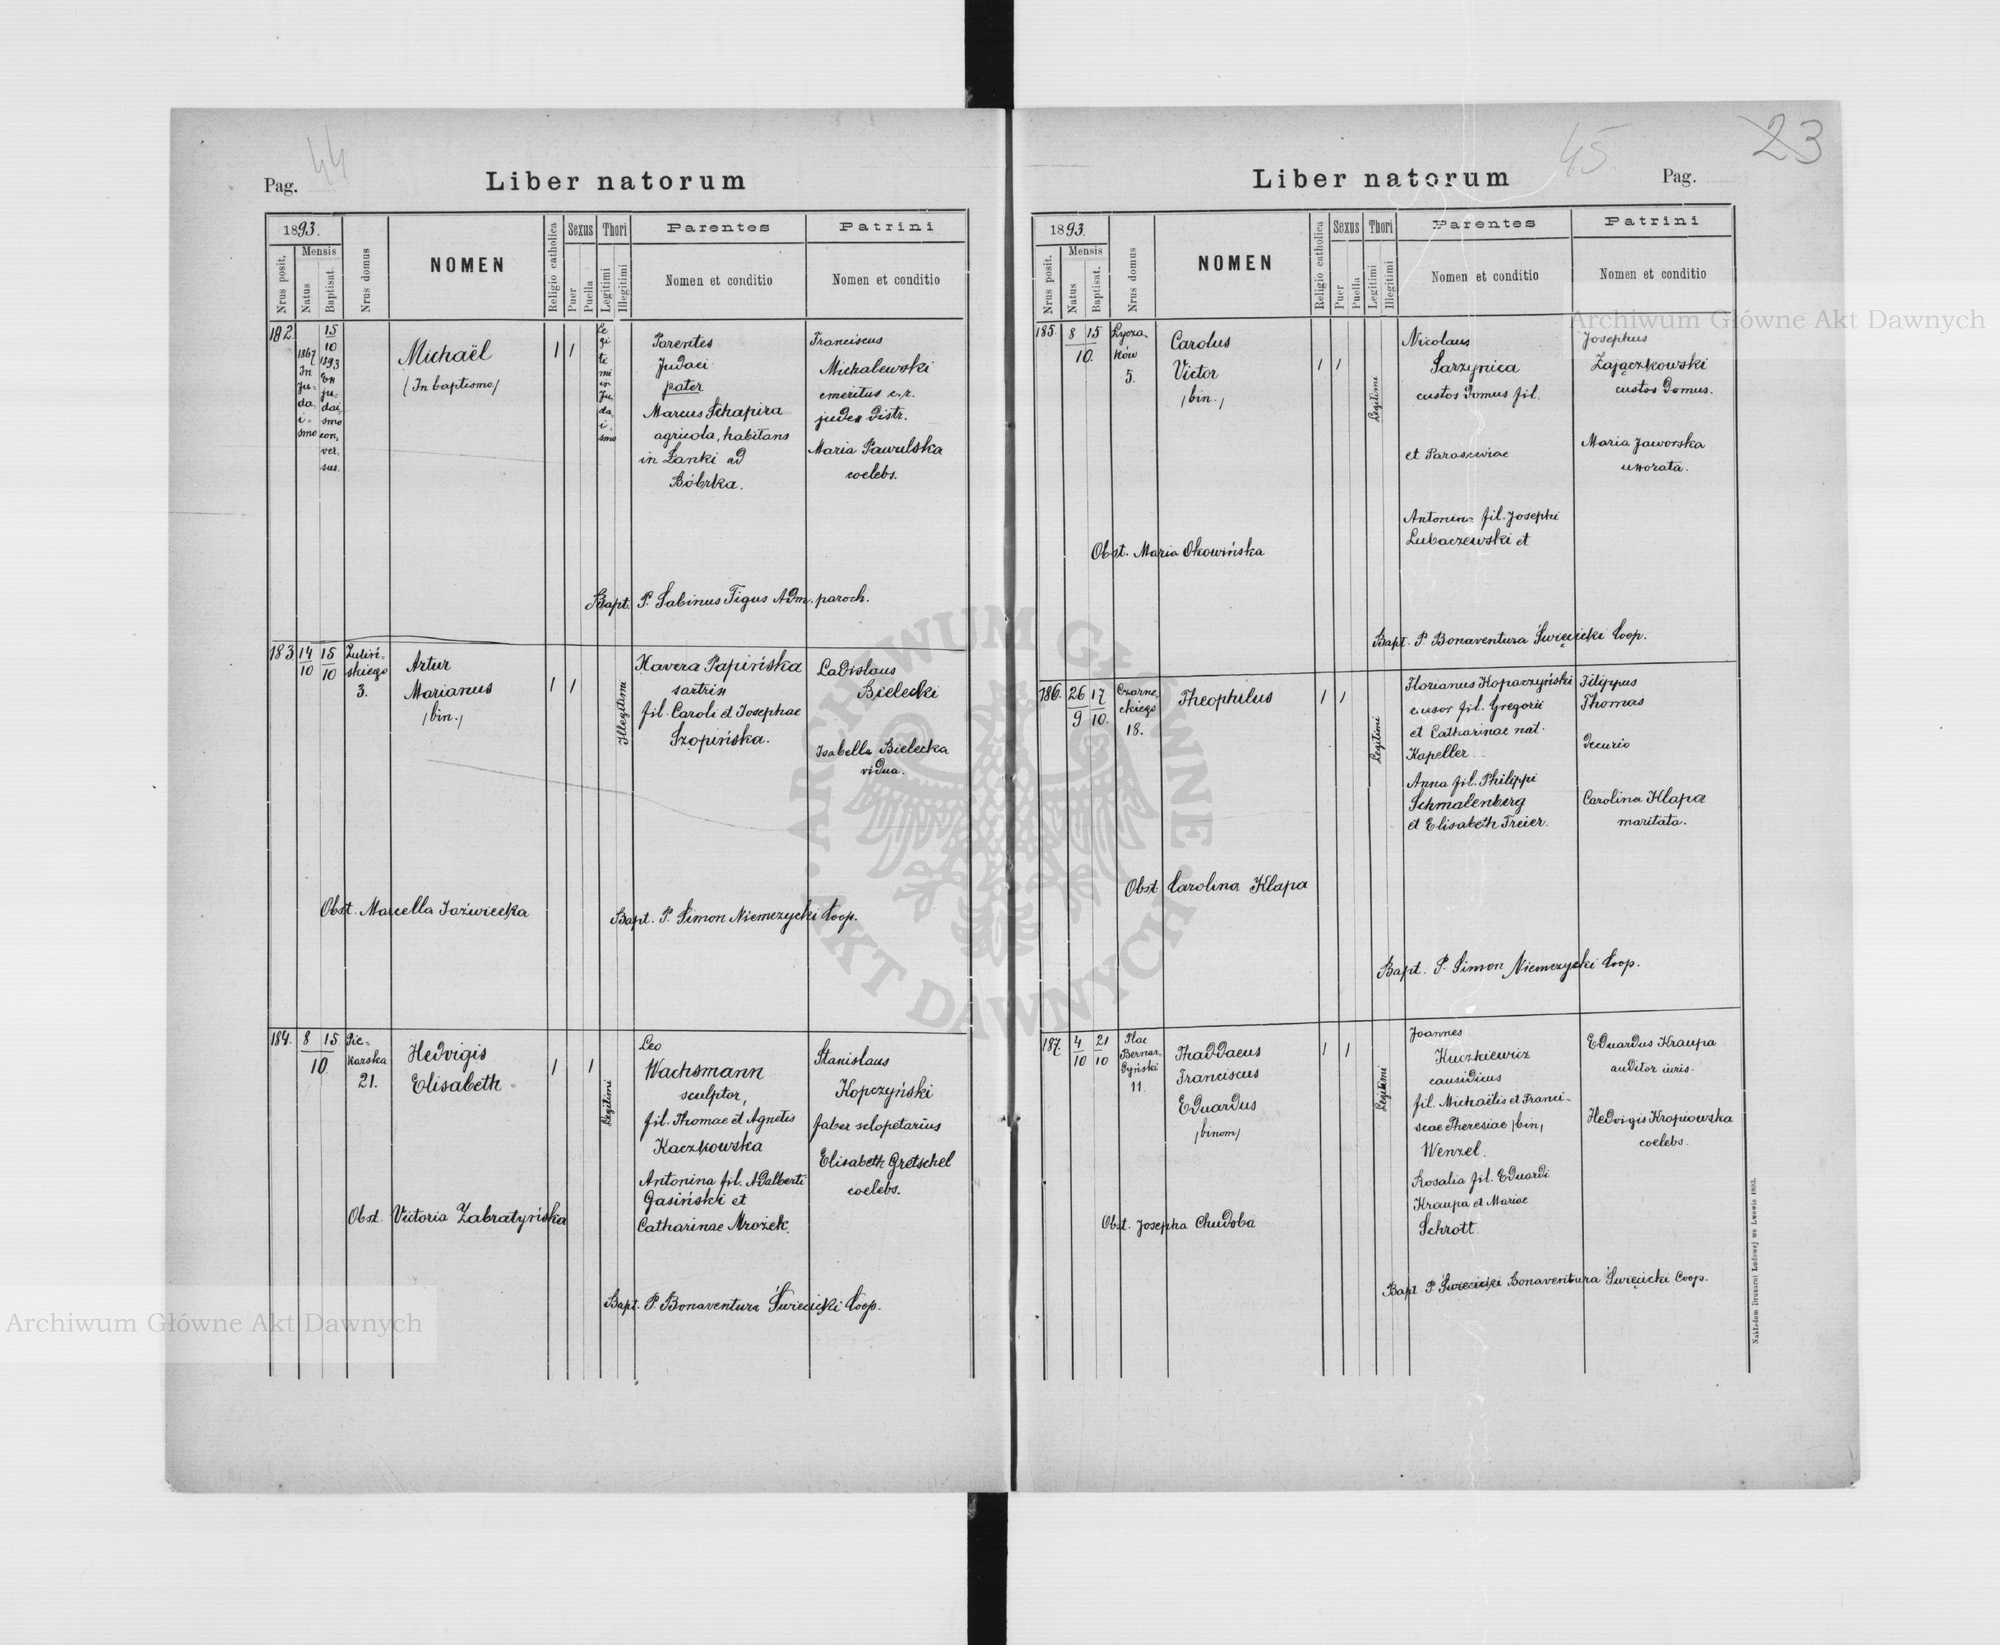 44
Pag.
Liber natorum
1893.
Nrus posit.
Mensis
Natus
Baptisat.
Nrus domus
NOMEN
Religio catholica
Sexus
Puer
Puella
Thori
Legitimi
Illegitimi
Parentes
Nomen et conditio
Patrini
Nomen et conditio
182.
1867
In
Ju-
da-
i-
smo
15
10
1893
Ex
ju-
dai
smo
con-
ver-
sus.
Michaël
(In baptismo)
1
1
Le
gi
ti
mi
in
Ju-
da-
i-
smo
Parentes
Judaei
pater
Marcus Schapira
agricola, habitans
in Łanki ad
Bóbrka.
Franciscus
Michalewski
emeritus c.r.
judex distr.
Maria Pawulska
coelebs.
Bapt. P. Sabinus Figus Adm. paroch.
183
14
10
15
10
Zuliń-
skiego
3.
Artur
Marianus
/bin./
1
1
Illegitimi
Xavera Papińska
sartrix
fil. Caroli et Josephae
Szopińska.
Ladislaus
Bielecki
Isabella Bielecka
vidua.
Obst. Marcella Jaźwiecka
Bapt. P. Simon Niemczycki Coop.
184.
8 15
10
Pie-
karska
21.
Hedvigis
Elisabeth.
1
1
Legitimi
Leo
Wachsmann
sculptor,
fil. Thomae et Agnetis
Kaczkowska
Antonina fil. Adalberti
Gasiński et
Catharinae Mrożek.
Stanislaus
Kopczyński
faber sclopetarius
Elisabeth Gretschel
coelebs.
Obst. Victoria Zabratyńska
Bapt. P. Bonaventura Święcicki Coop.
45
23
Liber natorum
Pag.
1893.
Nrus posit.
Mensis
Natus
Baptisat.
Nrus domus
NOMEN
Religio catholica
Sexus
Puer
Puella
Thori
Legitimi
Illegitimi
Parentes
Nomen et conditio
Patrini
Nomen et conditio
185.
8 15
10.
Łycza-
ków
5.
Carolus
Victor
/bin./
1
1
Legitimi
Nicolaus
Sarzynica
custos domus fil.
et Paraskwiae
Antonina fil. Josephi
Lubaczewski et
Josephus
Zajączkowski
custos domus.
Maria Jaworska
uxorata.
Obst. Maria Okowińska
Bapt. P. Bonaventura Święcicki Coop.
186.
26
9
17
10.
Czarne-
ckiego
18.
Theophilus
1
1
Legitimi
Florianus Kopaczyński
cursor fil. Gregorii
et Catharinae nat.
Kapeller.
Anna fil. Philippi
Schmalenberg
et Elisabeth Freier.
Filippus
Thomas
decurio
Carolina Klapa
maritata.
Obst Carolina Klapa
Bapt. P. Simon Niemczycki Coop.
187.
4
10
21
10
Plac
Bernar-
dyński
11.
Thaddaeus
Franciscus
Eduardus
/binom/
1
1
Legitimi
Joannes
Kuczkiewicz
causidicus
fil. Michaëlis et Franci-
scae Theresiae /bin/
Wenzel.
Rosalia fil. Eduardi
Kraupa et Mariae
Schrott.
Eduardus Kraupa
auditor iuris.
Hedvigis Kropiowska
coelebs.
Obst. Josepha Chudoba
Bapt P Święcicki Bonaventura Święcicki Coop.
Nakładem Drukarni Ludowej we Lwowie 1893.
Archiwum Główne Akt Dawnych
Archiwum Główne Akt Dawnych
ARCHIWUM GŁÓWNE AKT DAWNYCH